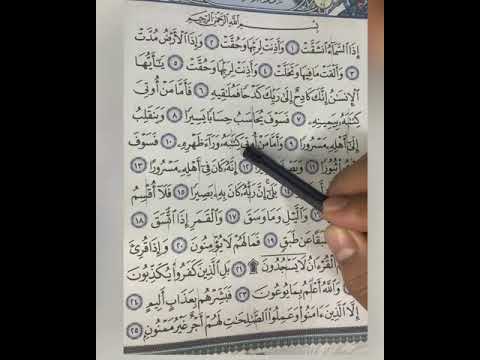 بِسْمِ ٱللَّهِ ٱلرَّحْمَٰنِ ٱلرَّحِيمِ
إِذَا ٱلسَّمَآءُ ٱنشَقَّتْ ١ وَأَذِنَتْ لِرَبِّهَا وَحُقَّتْ ٢ وَإِذَا ٱلْأَرْضُ مُدَّتْ
٣ وَأَلْقَتْ مَا فِيهَا وَتَخَلَّتْ ٤ وَأَذِنَتْ لِرَبِّهَا وَحُقَّتْ ٥ يَٰٓأَيُّهَا
ٱلْإِنسَٰنُ إِنَّكَ كَادِحٌ إِلَىٰ رَبِّكَ كَدْحًا فَمُلَٰقِيهِ ٦ فَأَمَّا مَنْ أُوتِيَ
كِتَٰبَهُۥ بِيَمِينِهِۦ ٧ فَسَوْفَ يُحَاسَبُ حِسَابًا يَسِيرًا ٨ وَيَنقَلِبُ
إِلَىٰٓ أَهْلِهِۦ مَسْرُورًا ٩ وَأَمَّا مَنْ أُوتِيَ كِتَٰبَهُۥ وَرَآءَ ظَهْرِهِۦ ١٠ فَسَوْفَ
ثُبُورًا ١١ ١٢ إِنَّهُۥ كَانَ فِيٓ أَهْلِهِۦ مَسْرُورًا ١٣
بَلَىٰٓ إِنَّ رَبَّهُۥ كَانَ بِهِۦ بَصِيرًا ١٥ فَلَآ أُقْسِمُ
وَٱلَّيْلِ وَمَا وَسَقَ ١٧ وَٱلْقَمَرِ إِذَا ٱتَّسَقَ ١٨
عَن طَبَقٍ ١٩ فَمَا لَهُمْ لَا يُؤْمِنُونَ ٢٠ وَإِذَا قُرِئَ
ٱلْقُرْءَانُ لَا يَسْجُدُونَ ۩ ٢١ بَلِ ٱلَّذِينَ كَفَرُوا۟ يُكَذِّبُونَ
وَٱللَّهُ أَعْلَمُ بِمَا يُوعُونَ ٢٣ فَبَشِّرْهُم بِعَذَابٍ أَلِيمٍ ٢٤
إِلَّا ٱلَّذِينَ ءَامَنُوا۟ وَعَمِلُوا۟ ٱلصَّٰلِحَٰتِ لَهُمْ أَجْرٌ غَيْرُ مَمْنُونٍۭ ٢٥